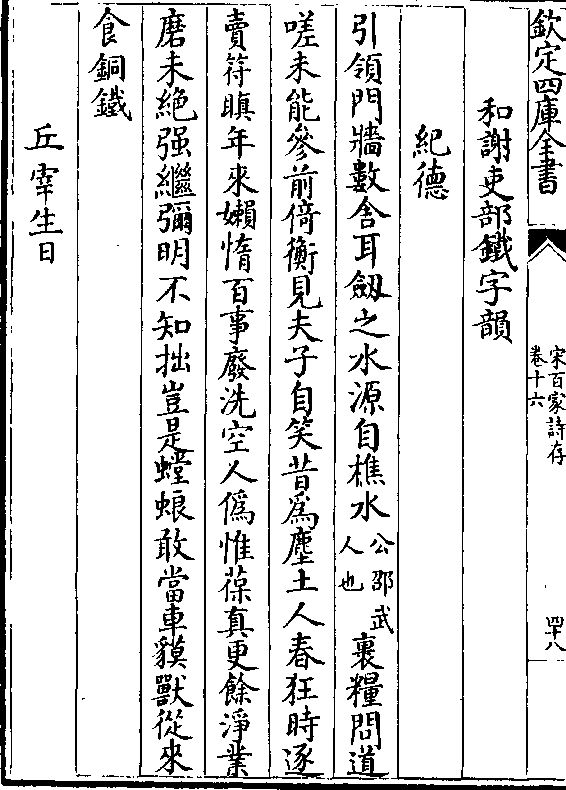 欽定四庫全書
宋百家詩存
卷十六
四十八
和謝吏部鐵字韻
紀德
引領門牆數舍耳劔之水源自樵水公邵武人也裹糧問道
嗟未能參前倚衡見夫子自笑昔為塵土人春狂時逐
賣符瞋年來嬾惰百事廢洗空人偽惟葆真更餘淨業
磨未絶强繼彌明不知拙豈是螳蜋敢當車貘獸從來
食銅鐵
丘宰生日